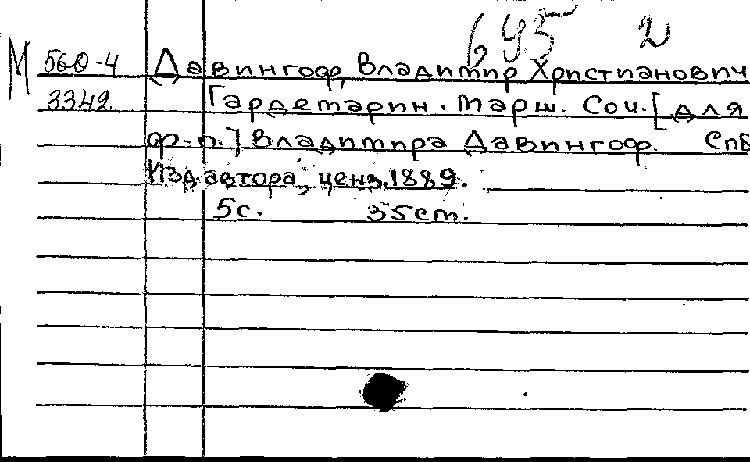 695 2
М 560-4 Давингоф, Владимир Христианович
3342 Гардемарин. Марш. Соч. [для
ф.-п.] Владимира Давингоф. Спб
Изд автора, ценз. 1889.
5с. 35ст.